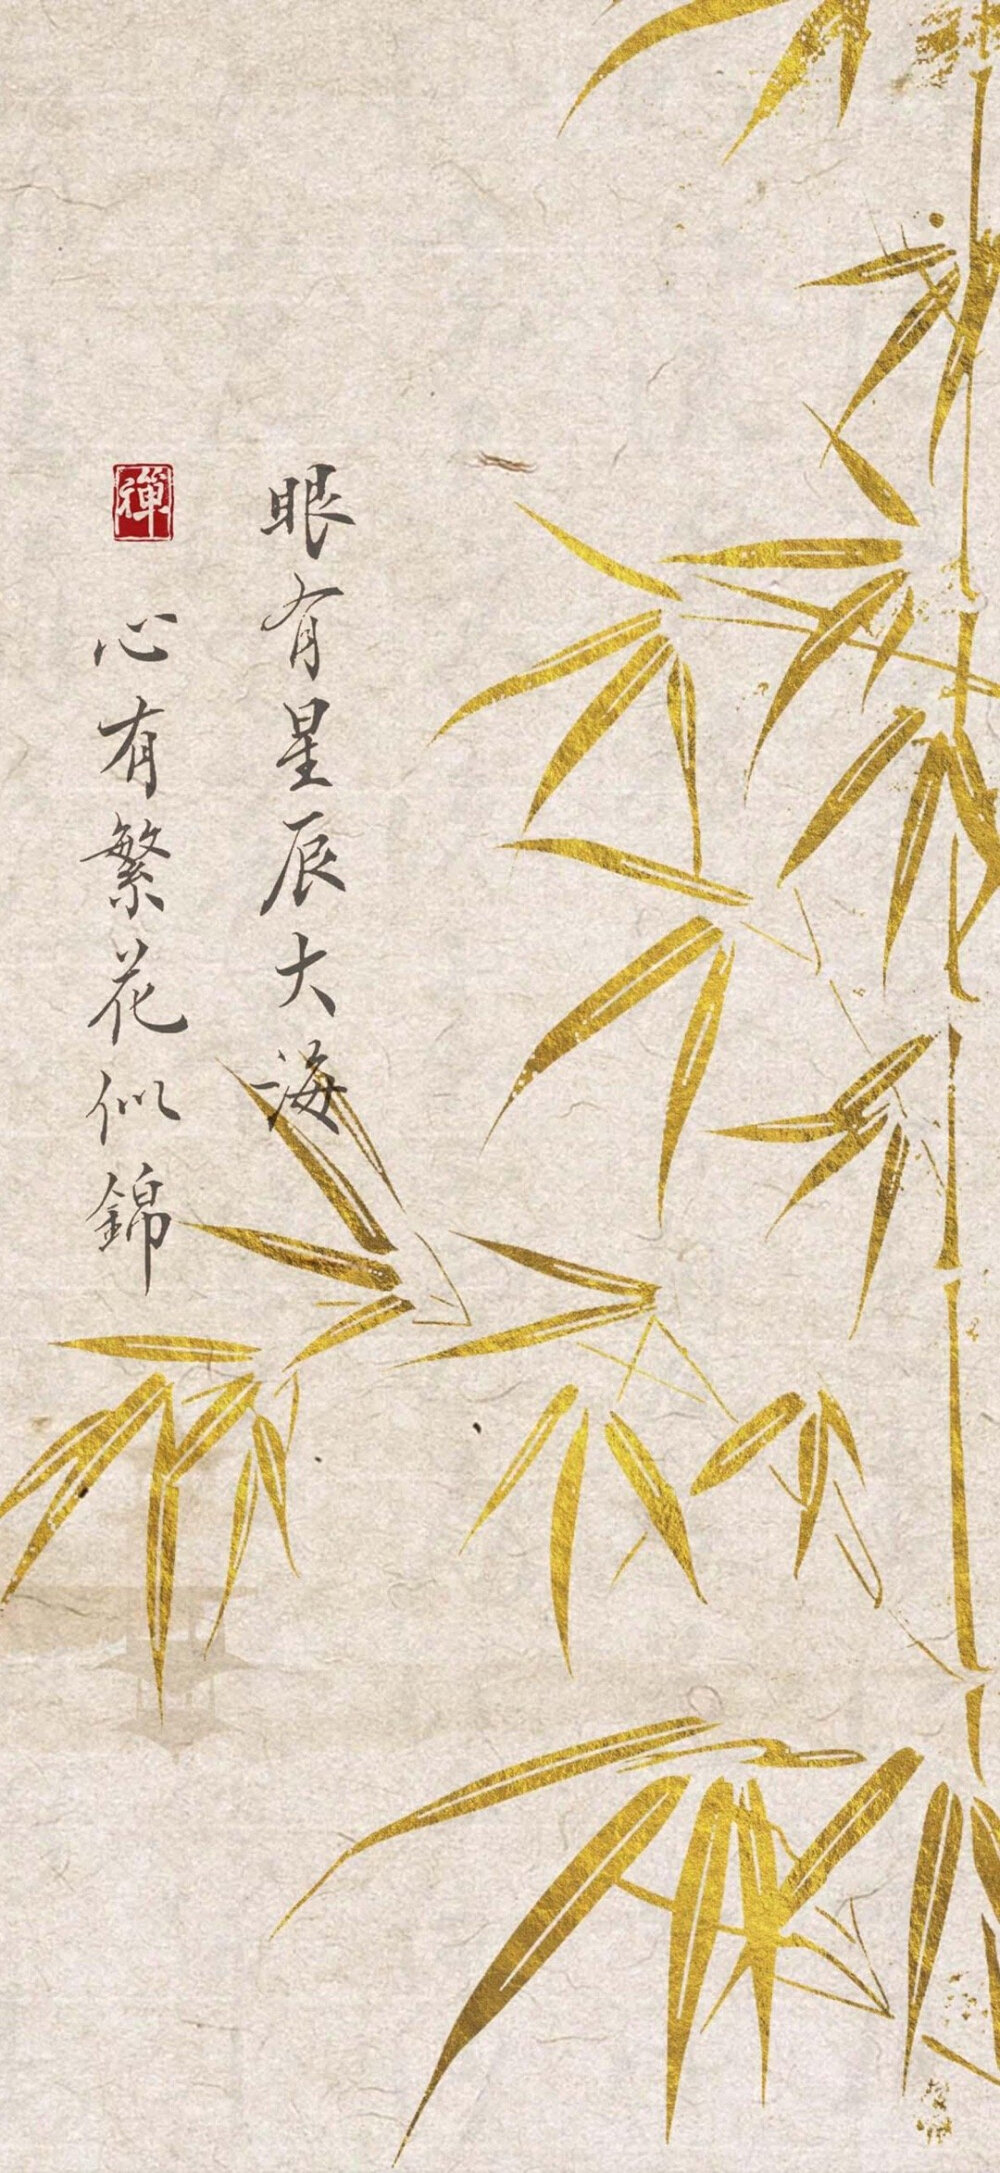 眼有星辰大海
心有繁花似錦
禪